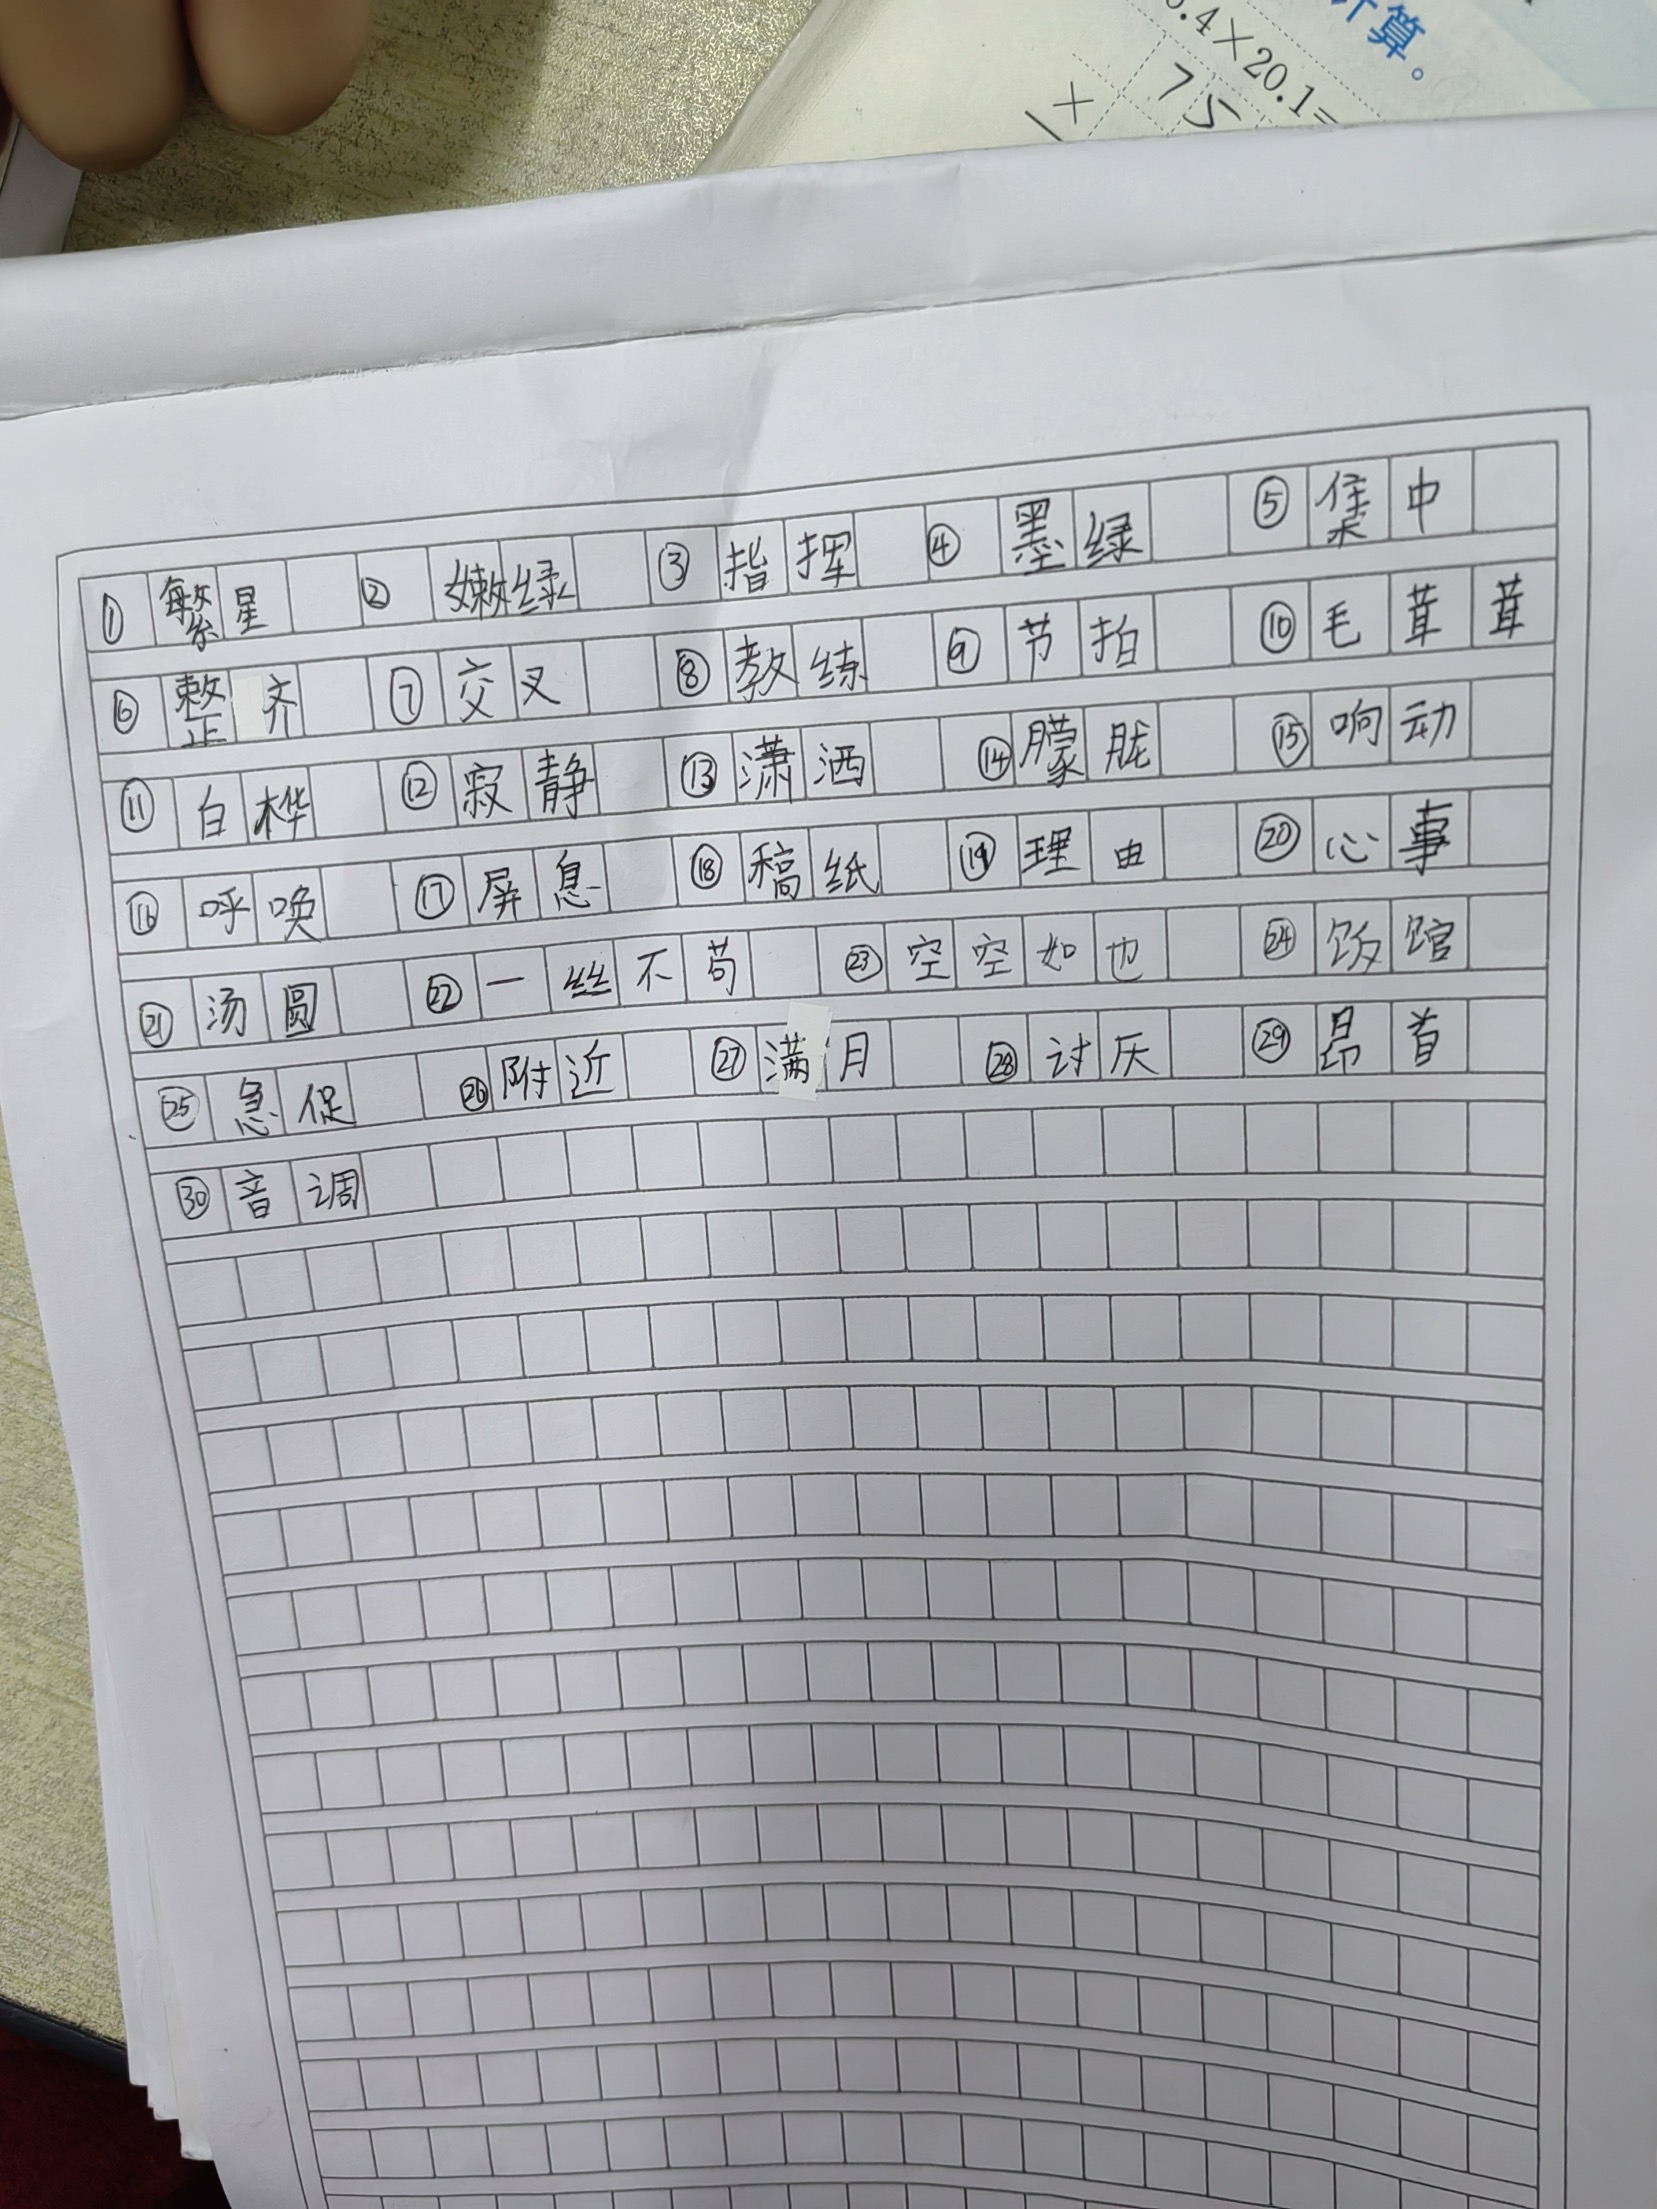 计算。
.4×20.1=
× 75
① 繁星 ② 嫩绿 ③ 指挥 ④ 墨绿 ⑤ 集中
⑥ 整齐 ⑦ 交叉 ⑧ 教练 ⑨ 节拍 ⑩ 毛茸茸
⑪ 白桦 ⑫ 寂静 ⑬ 潇洒 ⑭ 朦胧 ⑮ 响动
⑯ 呼唤 ⑰ 屏息 ⑱ 稿纸 ⑲ 理由 ⑳ 心事
㉑ 汤圆 ㉒ 一丝不苟 ㉓ 空空如也 ㉔ 饭馆
㉕ 急促 ㉖ 附近 ㉗ 满月 ㉘ 讨厌 ㉙ 昂首
㉚ 音调